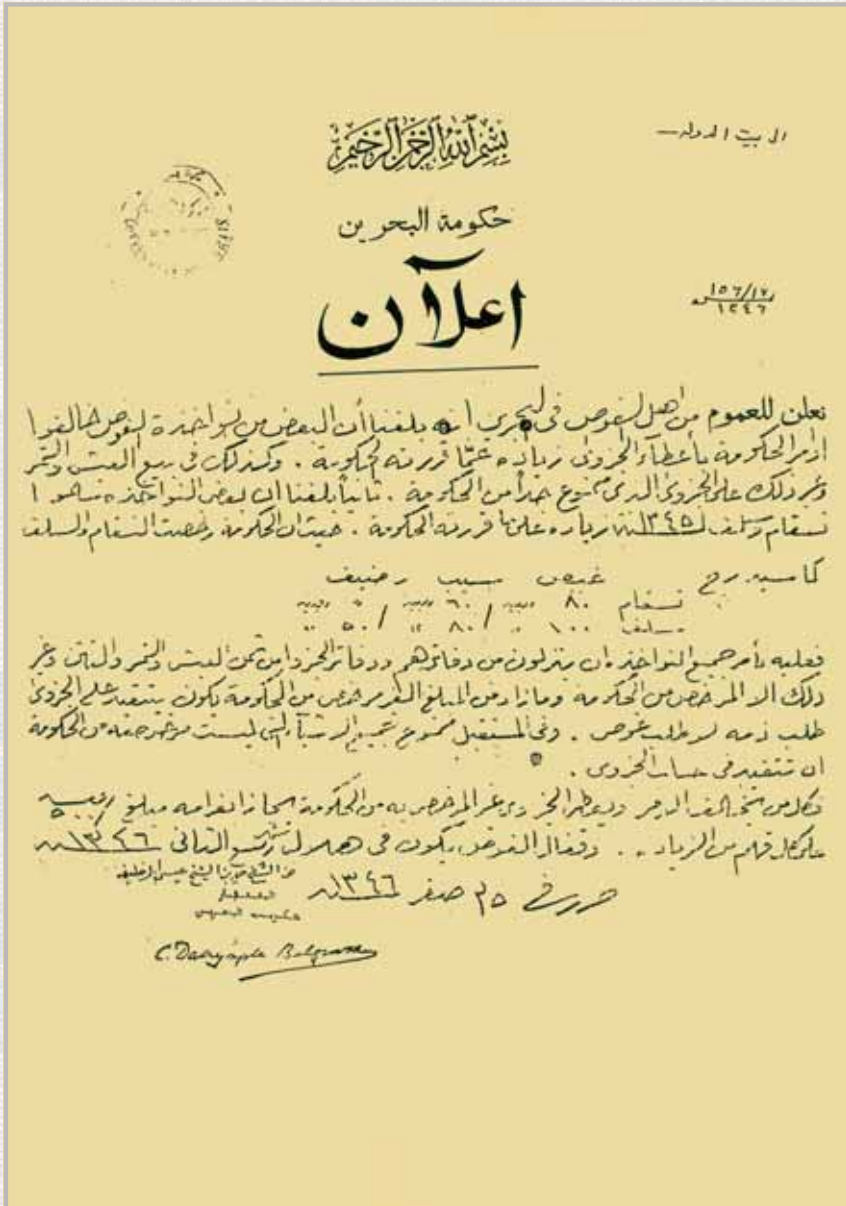 الى بيت الدولة
بسم الله الرحمن الرحيم
حكومة البحرين
١٥٦/١٧
١٣٤٦
اعلان
نعلن للعموم من اهل الغوص في البحرين انه بلغنا أن البعض من نواخذة الغوص خالفوا
اوامر الحكومة بأعطاء الجزوى زياده عما قررته الحكومة . وكذلك في بيع العيش والتمر
وغير ذلك على الجزوى الذي ممنوع جداً من الحكومة . ثانياً بلغنا ان بعض النواخذه
تسقام وسلف ١٣٤٥ زياده على ما قررته الحكومة . حيث ان الحكومة رخصت التسقام والسلف
كما سيه غيص سيب رضيف
تسقام ٨٠ روبيه / ٦٠ روبيه / روبيه
سلف ١٠٠ " / ٨٠ " / ٥٠ "
فعليه يأمر جميع النواخذه ان ينزلون من دفاترهم ودفاتر الجزوا من ثمن العيش والتمر والتتن وغير
ذلك الا المرخص من الحكومه وما زاد من المبلغ الغير مرخص من الحكومة يكون يتقيد على الجزوى
طلب ذمه لا طلب غوص . وفي المستقبل ممنوع جميع الاشياء التي ليست مرخصه من الحكومة
ان تتقيد في حساب الجزوى .
فكل من يخالف الامر ويعطي الجزوى غير المرخص به من الحكومة يجازا بغرامه مبلغ روبيه
على كل قلم من الزياده . وقفال الغوص يكون في هلال شهر ربيع الثاني ١٣٤٦
حرر في ٢٥ صفر ١٣٤٦
حكومة البحرين
C. Dalrymple Belgrave